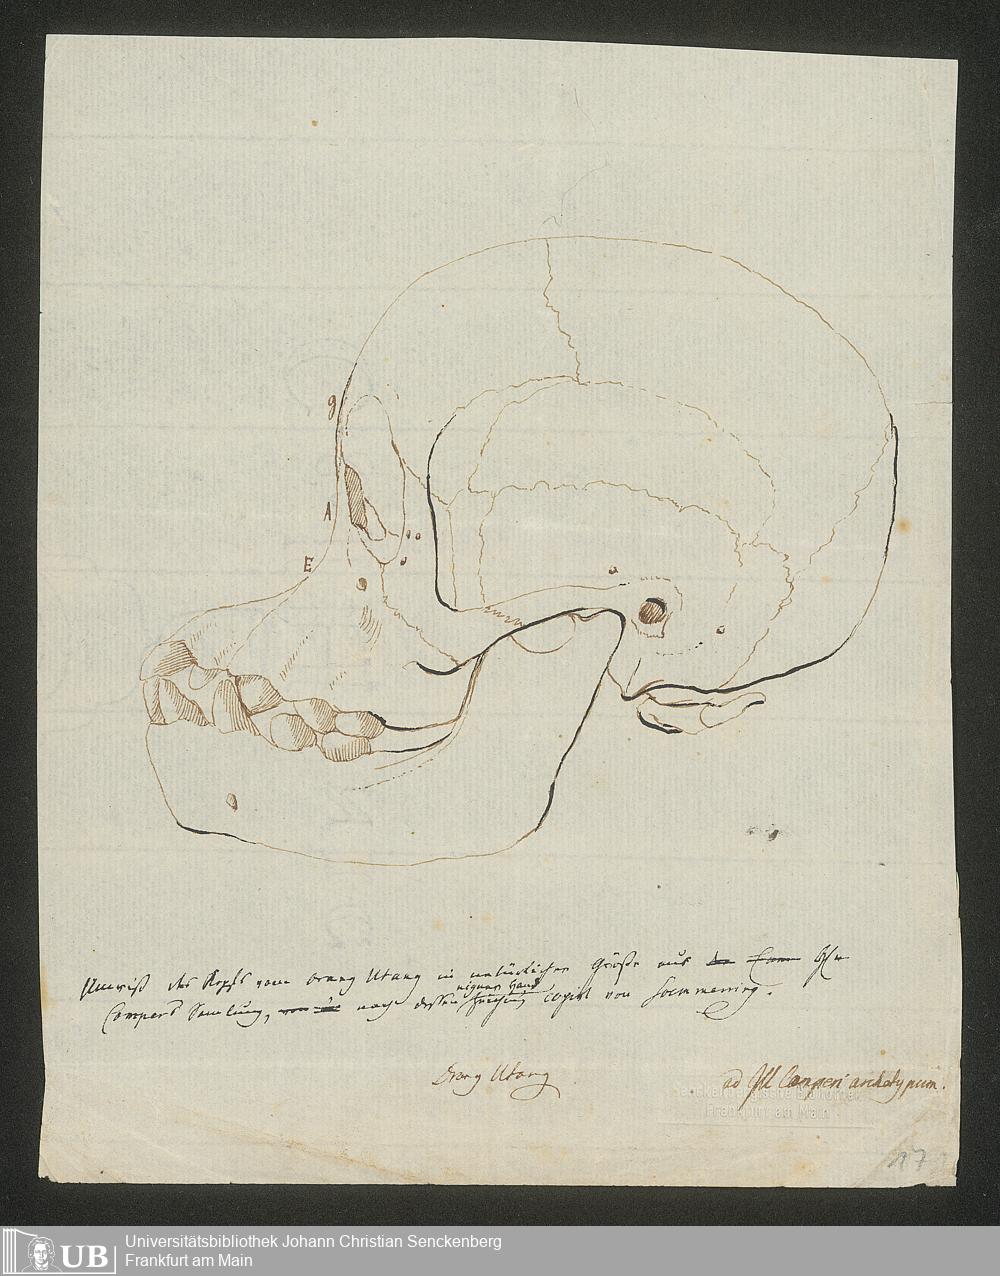 g
A
E
Umriß des Kopfs vom Orang Utang in natürlicher Größe aus
Campers Samlung, nach dessen eigner Hand copirt von Soemmerring.
Orang Utang
ad Ill Camperi archetypum.
Senckenbergische Bibliothek
Frankfurt am Main
17
UB
Universitätsbibliothek Johann Christian Senckenberg
Frankfurt am Main